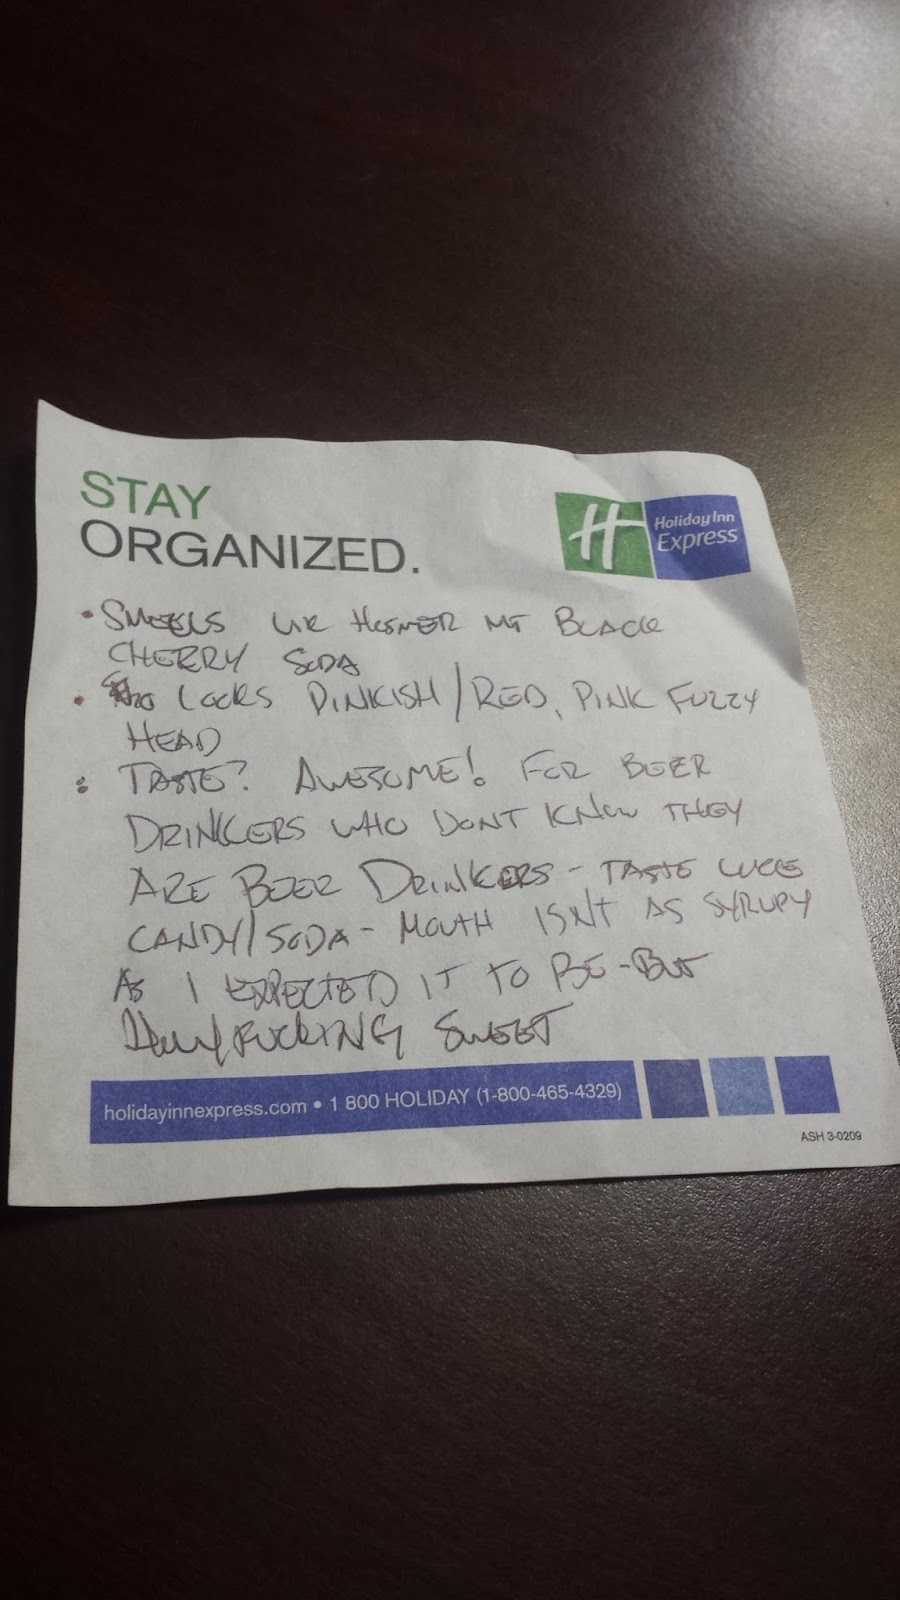 STAY
ORGANIZED.
H Holiday Inn
Express
• SMELLS LIK HOSMER MT BLACK
CHERRY SODA
• LOOKS PINKISH/RED, PINK FUZZY
HEAD
• TASTE? AWESOME! FOR BEER
DRINKERS WHO DONT KNOW THEY
ARE BEER DRINKERS - TASTE LIKE
CANDY/SODA - MOUTH ISN'T AS SYRUPY
AS I EXPECTED IT TO BE - BUT
FUCKING SWEET
holidayinnexpress.com • 1 800 HOLIDAY (1-800-465-4329)
ASH 3-0209